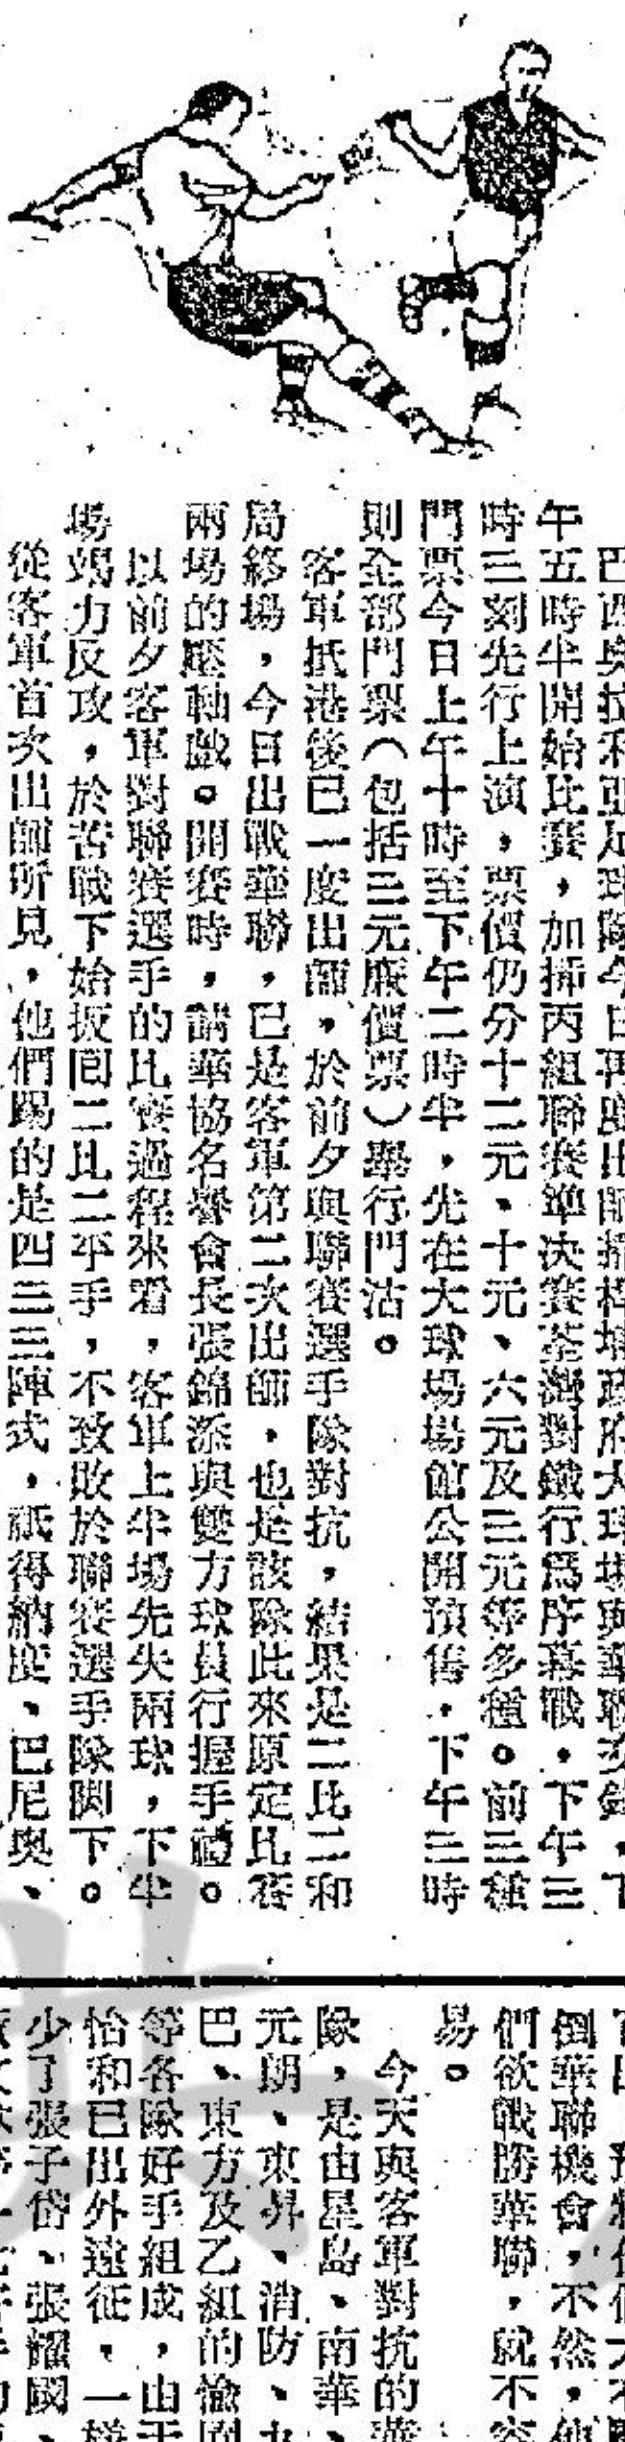 巴西奧拉利亞足球隊今日再度出師掃桿埔政府大球場與華聯交鋒，下
午五時半開始比賽，加揷丙組聯賽準决賽荃灣對鐵行爲序幕戰，下午三
時三刻先行上演，票價仍分十二元、十元、六元及三元等多種。前三種
門票今日上午十時至下午二時半，先在大球場場館公開預售，下午三時
則全部門票（包括三元廉價票）舉行門沽。
客軍抵港後已一度出師，於前夕與聯賽選手隊對抗，結果是二比二和
局終場，今日出戰華聯，已是客軍第二次出師，也是該隊此來原定比賽
兩場的壓軸戲。開賽時，請華協名譽會長張錦添與雙方球員行握手禮。
以前夕客軍對聯賽選手的比賽過程來看，客軍上半場先失兩球，下半
場竭力反攻，於苦戰下始扳回二比二平手，不致敗於聯賽選手隊脚下。
從客軍首次出師所見，他們踢的是四三三陣式，祇得納度、巴尼奧、
倒華聯機會，不然，他
們欲戰勝華聯，就不容
易。
今天與客軍對抗的華
隊，是由星島、南華、
元朗、東昇、消防、九
巴、東方及乙組的愉園
等各隊好手組成，由于
怡和已出外遠征，一樣
少了張子岱、張耀國、